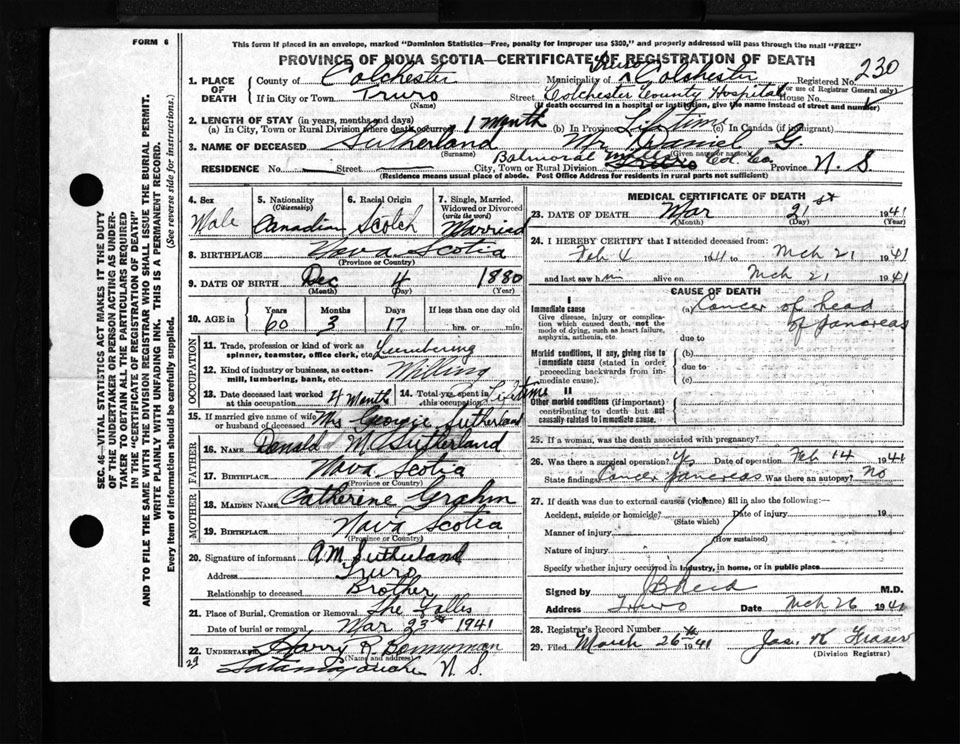 FORM 6
This form if placed in an envelope, marked "Dominion Statistics—Free, penalty for improper use $300," and properly addressed will pass through the mail "FREE"
PROVINCE OF NOVA SCOTIA—CERTIFICATE OF REGISTRATION OF DEATH
1. PLACE OF DEATH
County of Colchester Municipality of Truro Colchester Registered No. 230
(For use of Registrar General only)
If in City or Town Truro Street Colchester County Hospital House No.
(Name) (If death occurred in a hospital or institution, give the name instead of street and number)
2. LENGTH OF STAY (in years, months and days)
(a) In City, Town or Rural Division where death occurred 1 Month (b) In Province Lifetime (c) In Canada (if immigrant)
3. NAME OF DECEASED Sutherland Mr. Daniel G.
(Surname) (Given name or names)
RESIDENCE No. Street Balmoral Mills City, Town or Rural Division Col. Co. Province N. S.
(Residence means usual place of abode. Post Office Address for residents in rural parts not sufficient)
4. Sex Male
5. Nationality (Citizenship) Canadian
6. Racial Origin Scotch
7. Single, Married, Widowed or Divorced (write the word) Married
8. BIRTHPLACE Nova Scotia
(Province or Country)
9. DATE OF BIRTH Dec 4 1880
(Month) (Day) (Year)
10. AGE in Years Months Days If less than one day old
60 3 17 hrs. or min.
OCCUPATION
11. Trade, profession or kind of work as spinner, teamster, office clerk, etc. Lumbering
12. Kind of industry or business, as cotton-mill, lumbering, bank, etc. Milling
13. Date deceased last worked at this occupation 4 Month
14. Total yrs. spent in this occupation Lifetime
15. If married give name of wife or husband of deceased Mrs Georgie Sutherland
FATHER
16. Name Donald M. Sutherland
17. Birthplace Nova Scotia
(Province or Country)
MOTHER
18. Maiden Name Catherene Grahm
19. Birthplace Nova Scotia
(Province or Country)
20. Signature of informant A M Sutherland
Address Truro
Relationship to deceased Brother
21. Place of Burial, Cremation or Removal The Falls
Date of burial or removal Mar 23rd 1941
22. Undertaker Harry R Bonnyman
(Name and address)
29 Tatamagouche N. S.
MEDICAL CERTIFICATE OF DEATH
23. DATE OF DEATH Mar 21st 1941
(Month) (Day)
24. I HEREBY CERTIFY that I attended deceased from:
Feb 4 1941 to Mch 21 1941
and last saw him alive on Mch 21 1941
CAUSE OF DEATH
I
Immediate cause
Give disease, injury or complication which caused death, not the mode of dying, such as heart failure, asphyxia, asthenia, etc.
(a) Cancer of head of pancreas
due to
Morbid conditions, if any, giving rise to immediate cause (stated in order proceeding backwards from immediate cause).
(b)
due to
(c)
II
Other morbid conditions (if important) contributing to death but not causally related to immediate cause.
25. If a woman, was the death associated with pregnancy?
26. Was there a surgical operation? Yes Date of operation Feb 14 1941
State findings Cancer pancreas Was there an autopsy? No
27. If death was due to external causes (violence) fill in also the following:—
Accident, suicide or homicide? Date of injury 19
(State which)
Manner of injury
(How sustained)
Nature of injury
Specify whether injury occurred in industry, in home, or in public place
Signed by M.D.
Address Truro Date Mch 26 1941
28. Registrar's Record Number
29. Filed March 26th 1941 Jas. K Fraser
(Division Registrar)
SEC. 46—VITAL STATISTICS ACT MAKES IT THE DUTY
OF THE UNDERTAKER OR PERSON ACTING AS UNDER-
TAKER TO OBTAIN ALL THE PARTICULARS REQUIRED
IN THE "CERTIFICATE OF REGISTRATION OF DEATH"
AND TO FILE THE SAME WITH THE DIVISION REGISTRAR WHO SHALL ISSUE THE BURIAL PERMIT.
WRITE PLAINLY WITH UNFADING INK. THIS IS A PERMANENT RECORD.
Every item of information should be carefully supplied. (See reverse side for instructions.)